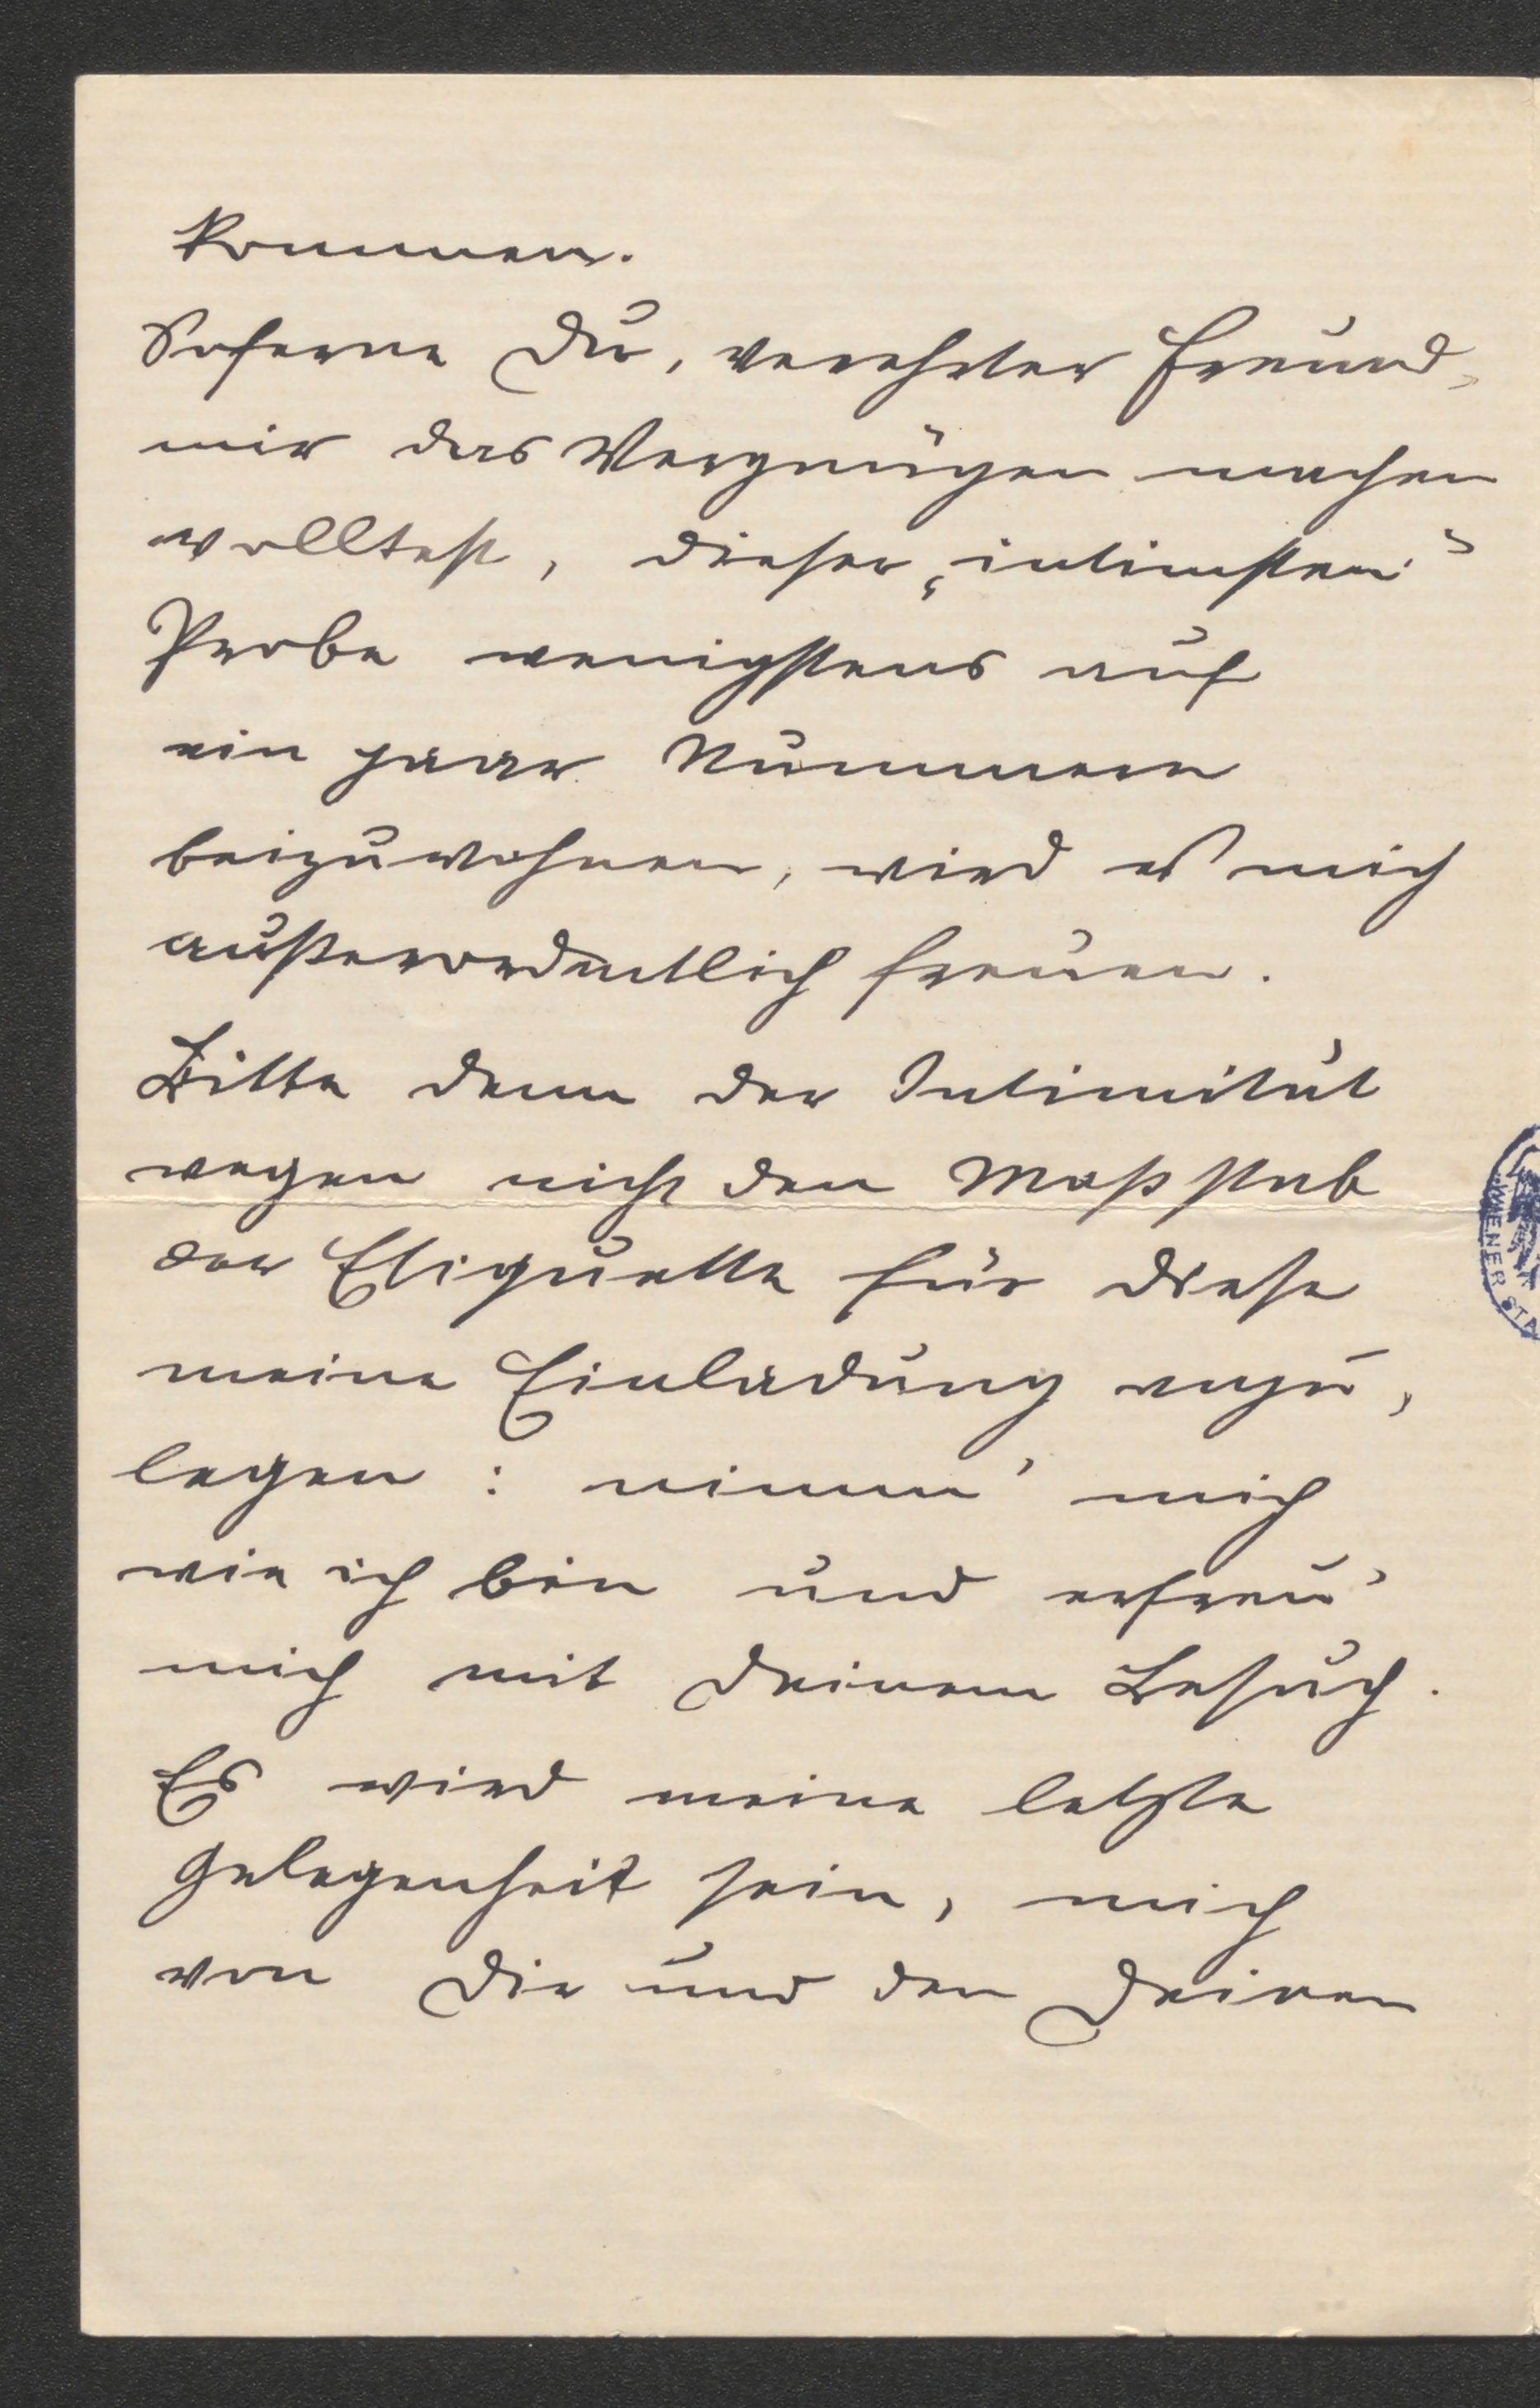 kommen.
Soferne Du, verehrter Freund,
mir das Vergnügen machen
wolltest, dieser „intimsten“
Probe wenigstens auf
ein paar Nummern
beizuwohnen, wird es mich
außerordentlich freuen.
Bitte denn der Intimität
wegen nicht den Maßstab
der Etiquette für diese
meine Einladung anzu-
legen: nimm' mich
wie ich bin und erfreu'
mich mit Deinem Besuch.
Es wird meine letzte
Gelegenheit sein, mich
von Dir und den Deinen
WIENER STA